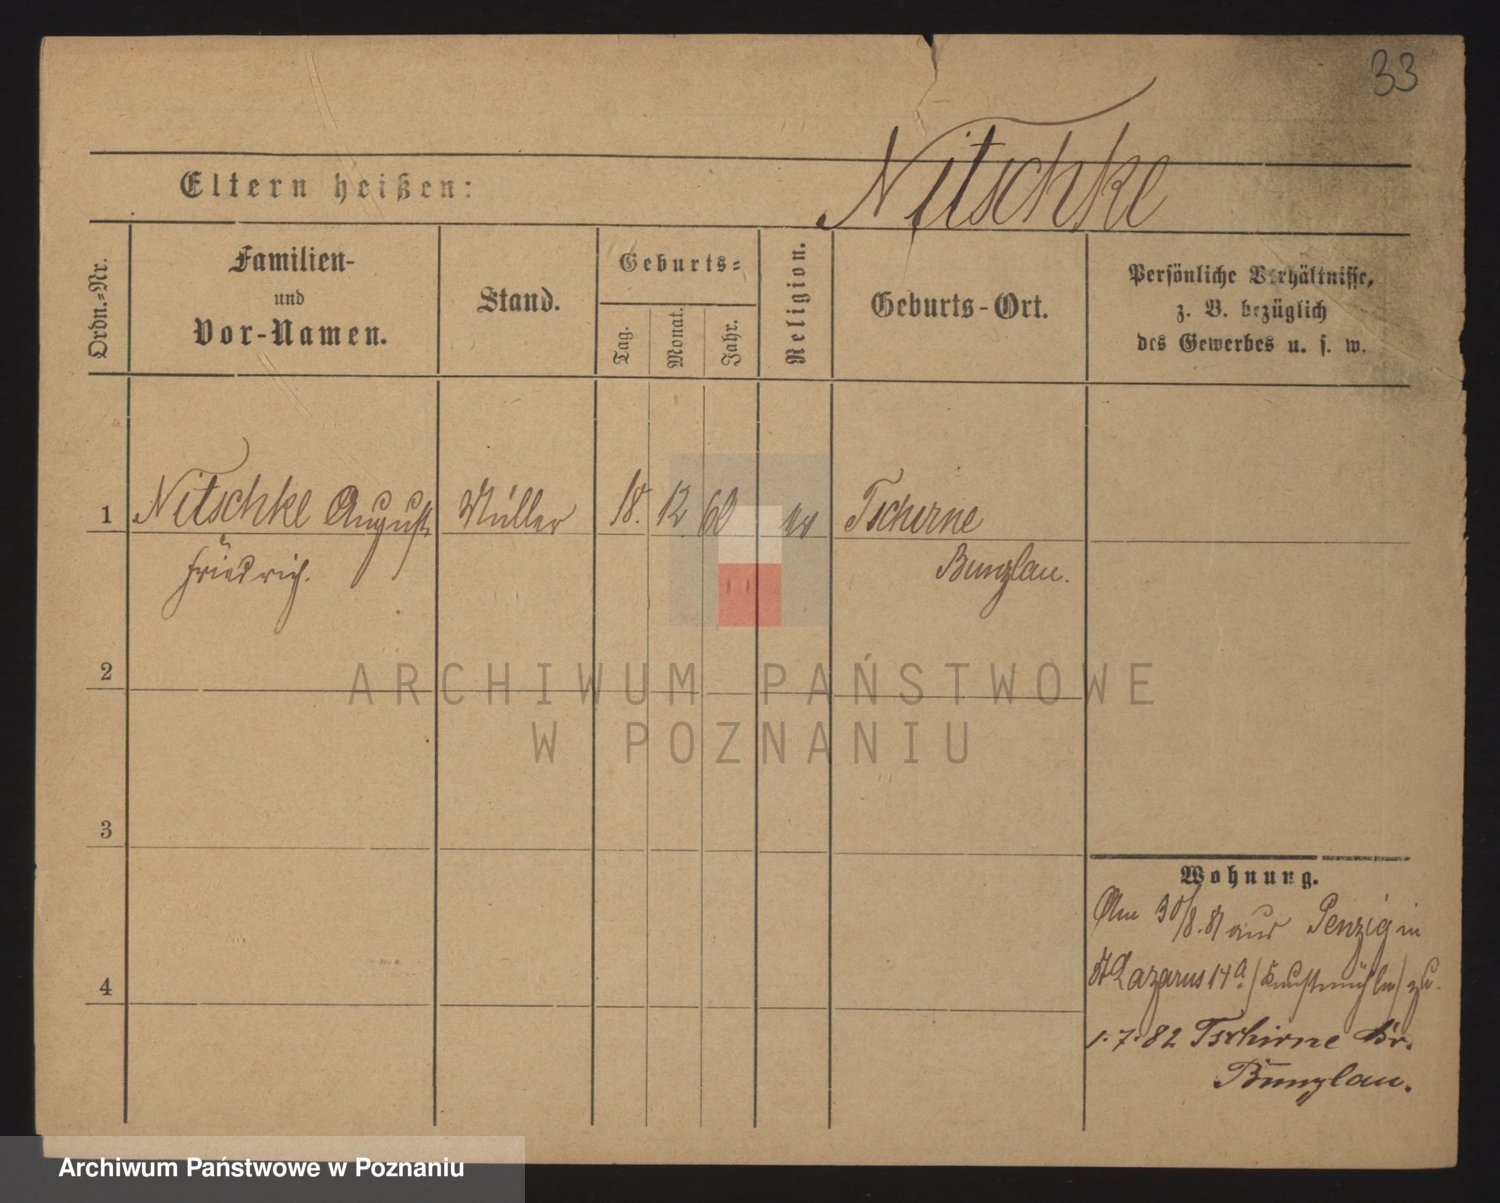 33
Nitschke
Eltern heißen:
Ordn.=Nr.
Familien-
und
Vor-Namen.
Stand.
Geburts=
Tag.
Monat.
Jahr.
Religion.
Geburts-Ort.
Persönliche Verhältnisse,
z. B. bezüglich
des Gewerbes u. s. w.
1
Nitschke August
Friedrich.
Müller
18.
12
60
ev
Tschirne
Bunzlau.
2
ARCHIWUM PAŃSTWOWE
W POZNANIU
3
4
Wohnung.
Am 30/8. 81 aus Penzig in
St Lazarus 14a (Kunstmühle) zu.
1.7.82 Tschirne Kr.
Bunzlau.
Archiwum Państwowe w Poznaniu